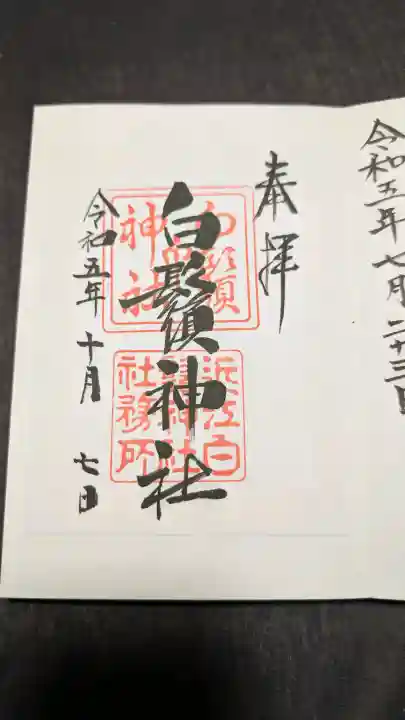 令和五年七月二十三日
奉拝
白鬚神社
令和五年十月七日
白鬚神社
近江白鬚神社社務所